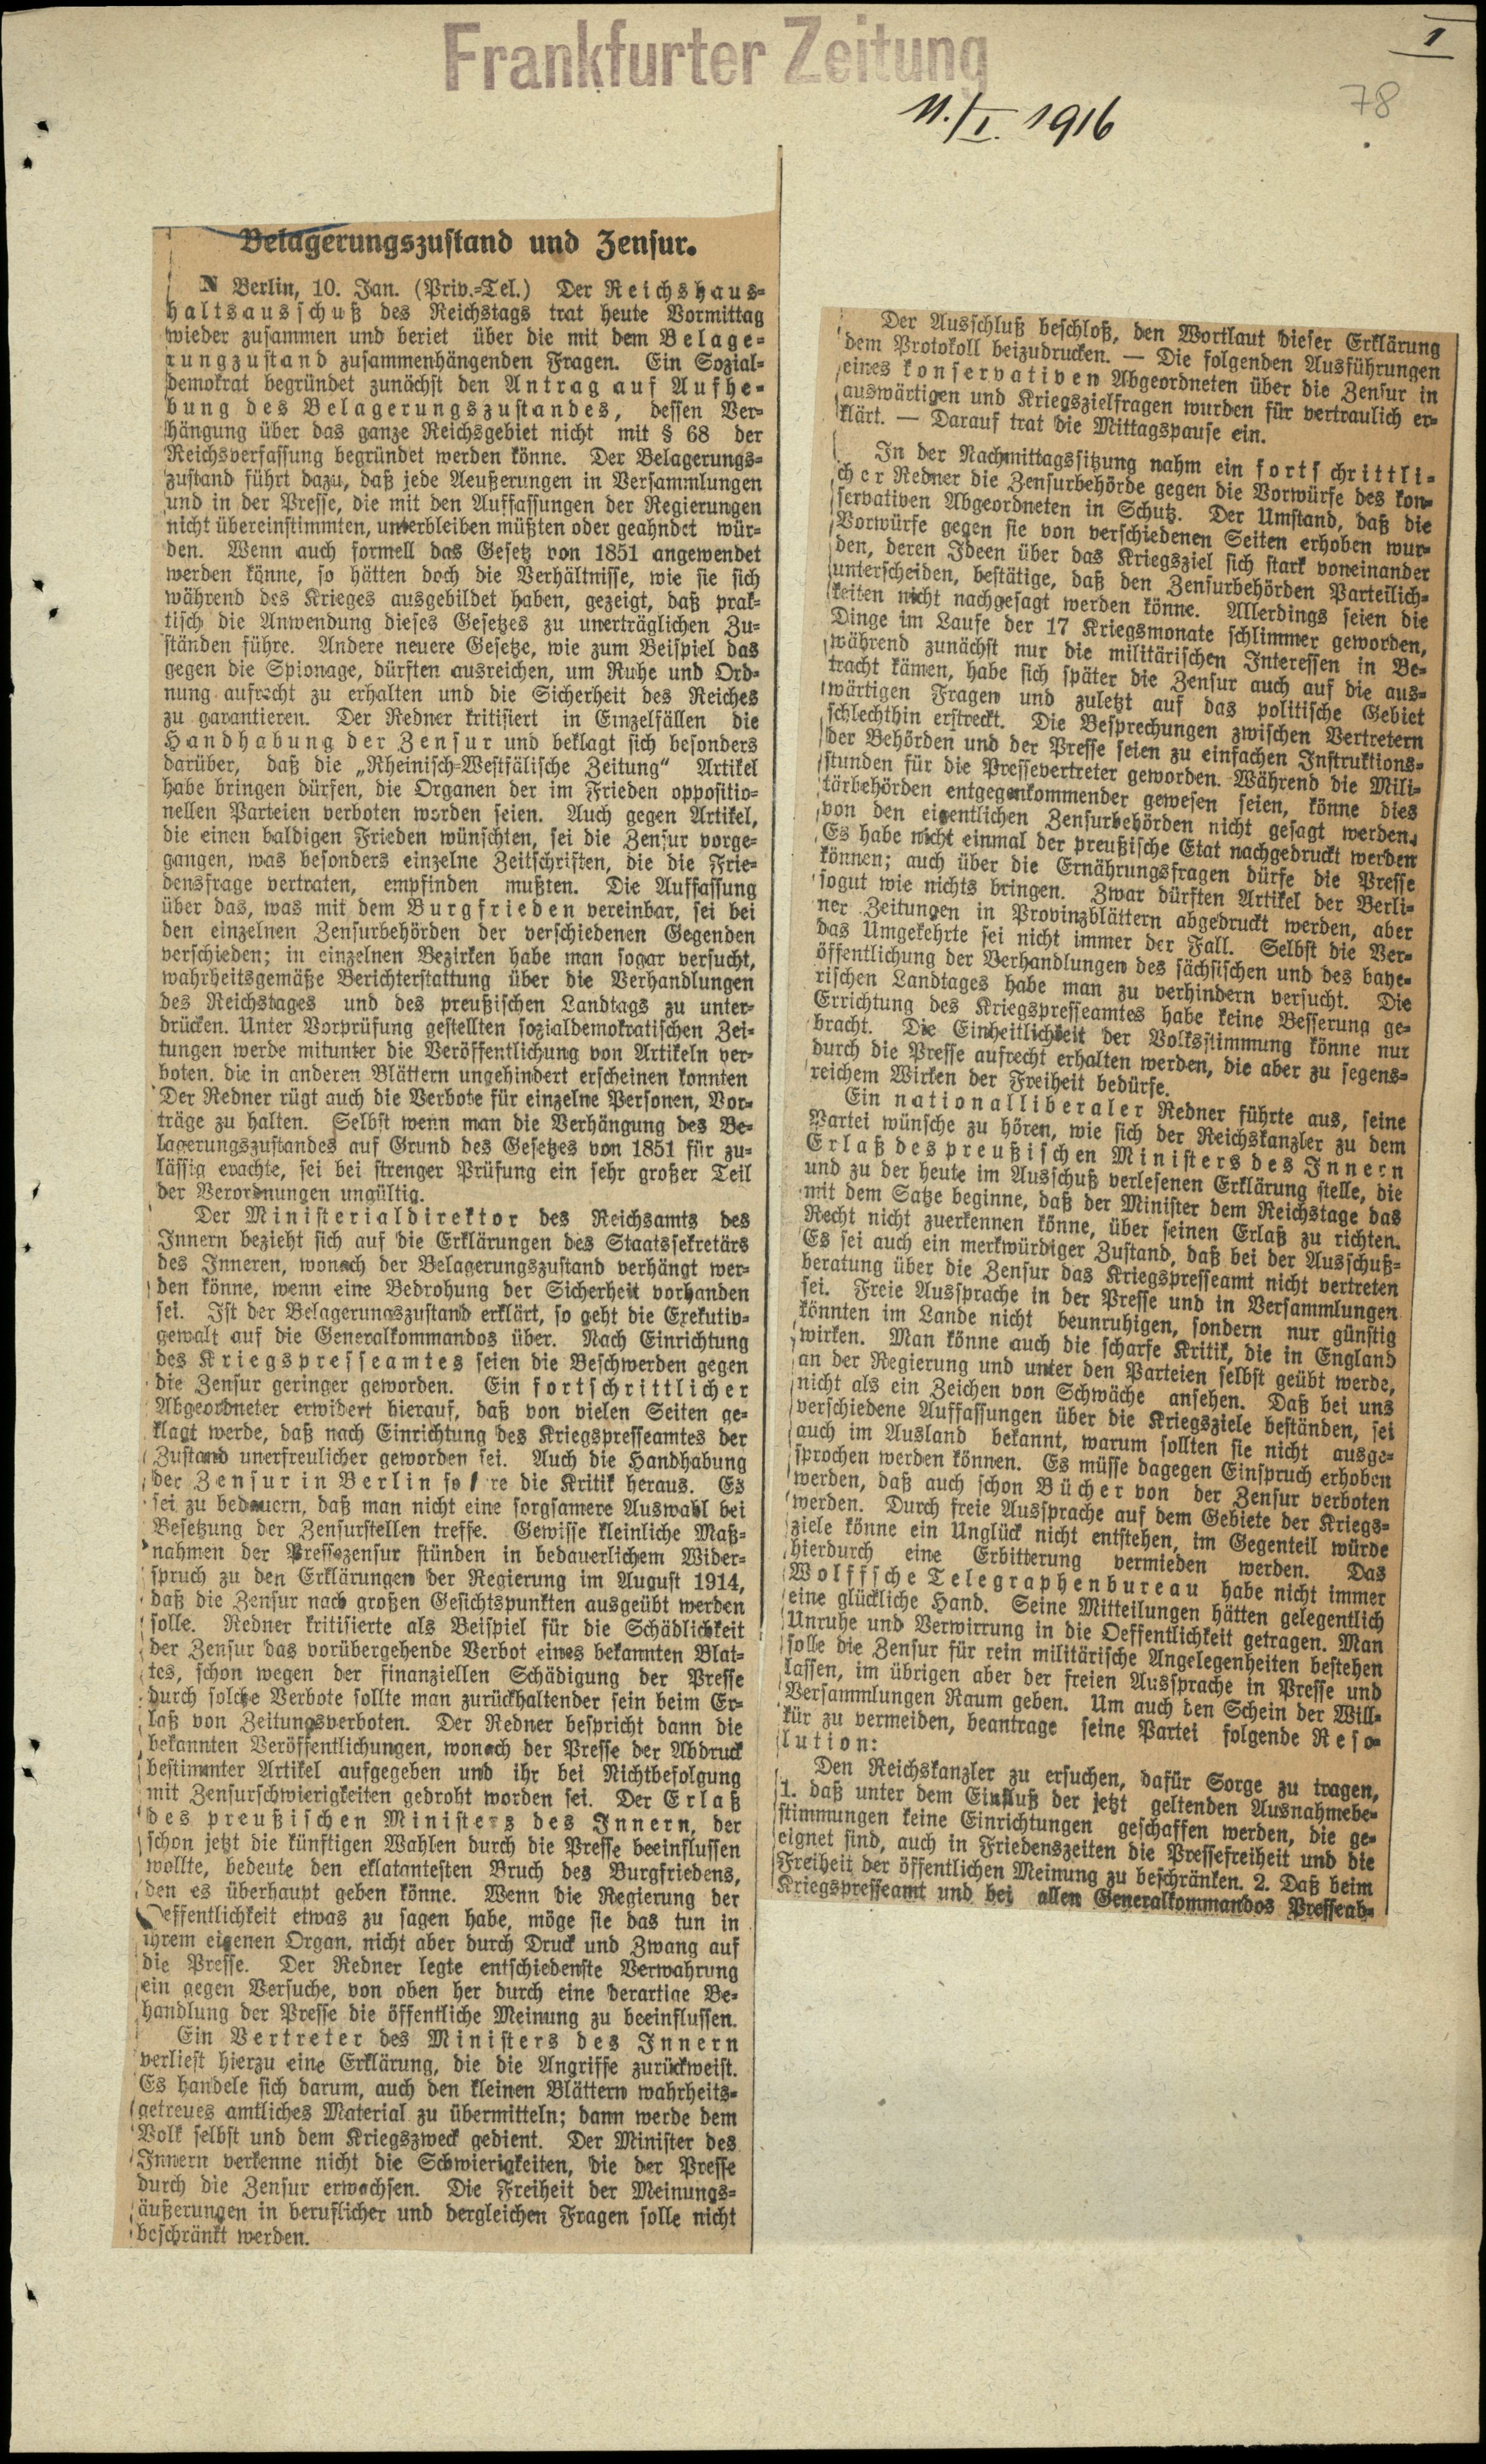 Frankfurter Zeitung
I
11./I. 1916
78
Belagerungszustand und Zensur.
N Berlin, 10. Jan. (Priv.-Tel.) Der Reichshaus-
haltsausschuß des Reichstags trat heute Vormittag
wieder zusammen und beriet über die mit dem Belage-
rungzustand zusammenhängenden Fragen. Ein Sozial-
demokrat begründet zunächst den Antrag auf Aufhe-
bung des Belagerungszustandes, dessen Ver-
hängung über das ganze Reichsgebiet nicht mit § 68 der
Reichsverfassung begründet werden könne. Der Belagerungs-
zustand führt dazu, daß jede Aeußerungen in Versammlungen
und in der Presse, die mit den Auffassungen der Regierungen
nicht übereinstimmten, unterbleiben müßten oder geahndet wür-
den. Wenn auch formell das Gesetz von 1851 angewendet
werden könne, so hätten doch die Verhältnisse, wie sie sich
während des Krieges ausgebildet haben, gezeigt, daß prak-
tisch die Anwendung dieses Gesetzes zu unerträglichen Zu-
ständen führe. Andere neuere Gesetze, wie zum Beispiel das
gegen die Spionage, dürften ausreichen, um Ruhe und Ord-
nung aufrecht zu erhalten und die Sicherheit des Reiches
zu garantieren. Der Redner kritisiert in Einzelfällen die
Handhabung der Zensur und beklagt sich besonders
darüber, daß die „Rheinisch-Westfälische Zeitung“ Artikel
habe bringen dürfen, die Organen der im Frieden oppositio-
nellen Parteien verboten worden seien. Auch gegen Artikel,
die einen baldigen Frieden wünschten, sei die Zensur vorge-
gangen, was besonders einzelne Zeitschriften, die die Frie-
densfrage vertraten, empfinden mußten. Die Auffassung
über das, was mit dem Burgfrieden vereinbar, sei bei
den einzelnen Zensurbehörden der verschiedenen Gegenden
verschieden; in einzelnen Bezirken habe man sogar versucht,
wahrheitsgemäße Berichterstattung über die Verhandlungen
des Reichstages und des preußischen Landtags zu unter-
drücken. Unter Vorprüfung gestellten sozialdemokratischen Zei-
tungen werde mitunter die Veröffentlichung von Artikeln ver-
boten, die in anderen Blättern ungehindert erscheinen konnten
Der Redner rügt auch die Verbote für einzelne Personen, Vor-
träge zu halten. Selbst wenn man die Verhängung des Be-
lagerungszustandes auf Grund des Gesetzes von 1851 für zu-
lässig erachte, sei bei strenger Prüfung ein sehr großer Teil
der Verordnungen ungültig.
Der Ministerialdirektor des Reichsamts des
Innern bezieht sich auf die Erklärungen des Staatssekretärs
des Inneren, wonach der Belagerungszustand verhängt wer-
den könne, wenn eine Bedrohung der Sicherheit vorhanden
sei. Ist der Belagerungszustand erklärt, so geht die Exekutiv-
gewalt auf die Generalkommandos über. Nach Einrichtung
des Kriegspresseamtes seien die Beschwerden gegen
die Zensur geringer geworden. Ein fortschrittlicher
Abgeordneter erwidert hierauf, daß von vielen Seiten ge-
klagt werde, daß nach Einrichtung des Kriegspresseamtes der
Zustand unerfreulicher geworden sei. Auch die Handhabung
der Zensur in Berlin fo re die Kritik heraus. Es
sei zu bedauern, daß man nicht eine sorgsamere Auswahl bei
Besetzung der Zensurstellen treffe. Gewisse kleinliche Maß-
nahmen der Pressezensur stünden in bedauerlichem Wider-
spruch zu den Erklärungen der Regierung im August 1914,
daß die Zensur nach großen Gesichtspunkten ausgeübt werden
solle. Redner kritisierte als Beispiel für die Schädlichkeit
der Zensur das vorübergehende Verbot eines bekannten Blat-
tes, schon wegen der finanziellen Schädigung der Presse
durch solche Verbote sollte man zurückhaltender sein beim Er-
laß von Zeitungsverboten. Der Redner bespricht dann die
bekannten Veröffentlichungen, wonach der Presse der Abdruck
bestimmter Artikel aufgegeben und ihr bei Nichtbefolgung
mit Zensurschwierigkeiten gedroht worden sei. Der Erlaß
des preußischen Ministers des Innern, der
schon jetzt die künftigen Wahlen durch die Presse beeinflussen
wollte, bedeute den eklatantesten Bruch des Burgfriedens,
den es überhaupt geben könne. Wenn die Regierung der
Oeffentlichkeit etwas zu sagen habe, möge sie das tun in
ihrem eigenen Organ, nicht aber durch Druck und Zwang auf
die Presse. Der Redner legte entschiedenste Verwahrung
ein gegen Versuche, von oben her durch eine derartige Be-
handlung der Presse die öffentliche Meinung zu beeinflussen.
Ein Vertreter des Ministers des Innern
verliest hierzu eine Erklärung, die die Angriffe zurückweist.
Es handele sich darum, auch den kleinen Blättern wahrheits-
getreues amtliches Material zu übermitteln; dann werde dem
Volk selbst und dem Kriegszweck gedient. Der Minister des
Innern verkenne nicht die Schwierigkeiten, die der Presse
durch die Zensur erwachsen. Die Freiheit der Meinungs-
äußerungen in beruflicher und dergleichen Fragen solle nicht
beschränkt werden.
Der Ausschluß beschloß, den Wortlaut dieser Erklärung
dem Protokoll beizudrucken. — Die folgenden Ausführungen
eines konservativen Abgeordneten über die Zensur in
auswärtigen und Kriegszielfragen wurden für vertraulich er-
klärt. — Darauf trat die Mittagspause ein.
In der Nachmittagssitzung nahm ein fortschrittli-
cher Redner die Zensurbehörde gegen die Vorwürfe des kon-
servativen Abgeordneten in Schutz. Der Umstand, daß die
Vorwürfe gegen sie von verschiedenen Seiten erhoben wur-
den, deren Ideen über das Kriegsziel sich stark voneinander
unterscheiden, bestätige, daß den Zensurbehörden Parteilich-
keiten nicht nachgesagt werden könne. Allerdings seien die
Dinge im Laufe der 17 Kriegsmonate schlimmer geworden,
während zunächst nur die militärischen Interessen in Be-
tracht kämen, habe sich später die Zensur auch auf die aus-
wärtigen Fragen und zuletzt auf das politische Gebiet
schlechthin erstreckt. Die Besprechungen zwischen Vertretern
der Behörden und der Presse seien zu einfachen Instruktions-
stunden für die Pressevertreter geworden. Während die Mili-
tärbehörden entgegenkommender gewesen seien, könne dies
von den eigentlichen Zensurbehörden nicht gesagt werden.
Es habe nicht einmal der preußische Etat nachgedruckt werden
können; auch über die Ernährungsfragen dürfe die Presse
sogut wie nichts bringen. Zwar dürften Artikel der Berli-
ner Zeitungen in Provinzblättern abgedruckt werden, aber
das Umgekehrte sei nicht immer der Fall. Selbst die Ver-
öffentlichung der Verhandlungen des sächsischen und des baye-
rischen Landtages habe man zu verhindern versucht. Die
Errichtung des Kriegspresseamtes habe keine Besserung ge-
bracht. Die Einheitlichkeit der Volksstimmung könne nur
durch die Presse aufrecht erhalten werden, die aber zu segens-
reichem Wirken der Freiheit bedürfe.
Ein nationalliberaler Redner führte aus, seine
Partei wünsche zu hören, wie sich der Reichskanzler zu dem
Erlaß des preußischen Ministers des Innern
und zu der heute im Ausschuß verlesenen Erklärung stelle, die
mit dem Satze beginne, daß der Minister dem Reichstage das
Recht nicht zuerkennen könne, über seinen Erlaß zu richten.
Es sei auch ein merkwürdiger Zustand, daß bei der Ausschuß-
beratung über die Zensur das Kriegspresseamt nicht vertreten
sei. Freie Aussprache in der Presse und in Versammlungen
könnten im Lande nicht beunruhigen, sondern nur günstig
wirken. Man könne auch die scharfe Kritik, die in England
an der Regierung und unter den Parteien selbst geübt werde,
nicht als ein Zeichen von Schwäche ansehen. Daß bei uns
verschiedene Auffassungen über die Kriegsziele beständen, sei
auch im Ausland bekannt, warum sollten sie nicht ausge-
sprochen werden können. Es müsse dagegen Einspruch erhoben
werden, daß auch schon Bücher von der Zensur verboten
werden. Durch freie Aussprache auf dem Gebiete der Kriegs-
ziele könne ein Unglück nicht entstehen, im Gegenteil würde
hierdurch eine Erbitterung vermieden werden. Das
Wolffsche Telegraphenbureau habe nicht immer
eine glückliche Hand. Seine Mitteilungen hätten gelegentlich
Unruhe und Verwirrung in die Oeffentlichkeit getragen. Man
solle die Zensur für rein militärische Angelegenheiten bestehen
lassen, im übrigen aber der freien Aussprache in Presse und
Versammlungen Raum geben. Um auch den Schein der Will-
kür zu vermeiden, beantrage seine Partei folgende Reso-
lution:
Den Reichskanzler zu ersuchen, dafür Sorge zu tragen,
1. daß unter dem Einfluß der jetzt geltenden Ausnahmebe-
stimmungen keine Einrichtungen geschaffen werden, die ge-
eignet sind, auch in Friedenszeiten die Pressefreiheit und die
Freiheit der öffentlichen Meinung zu beschränken. 2. Daß beim
Kriegspresseamt und bei allen Generalkommandos Presseab-